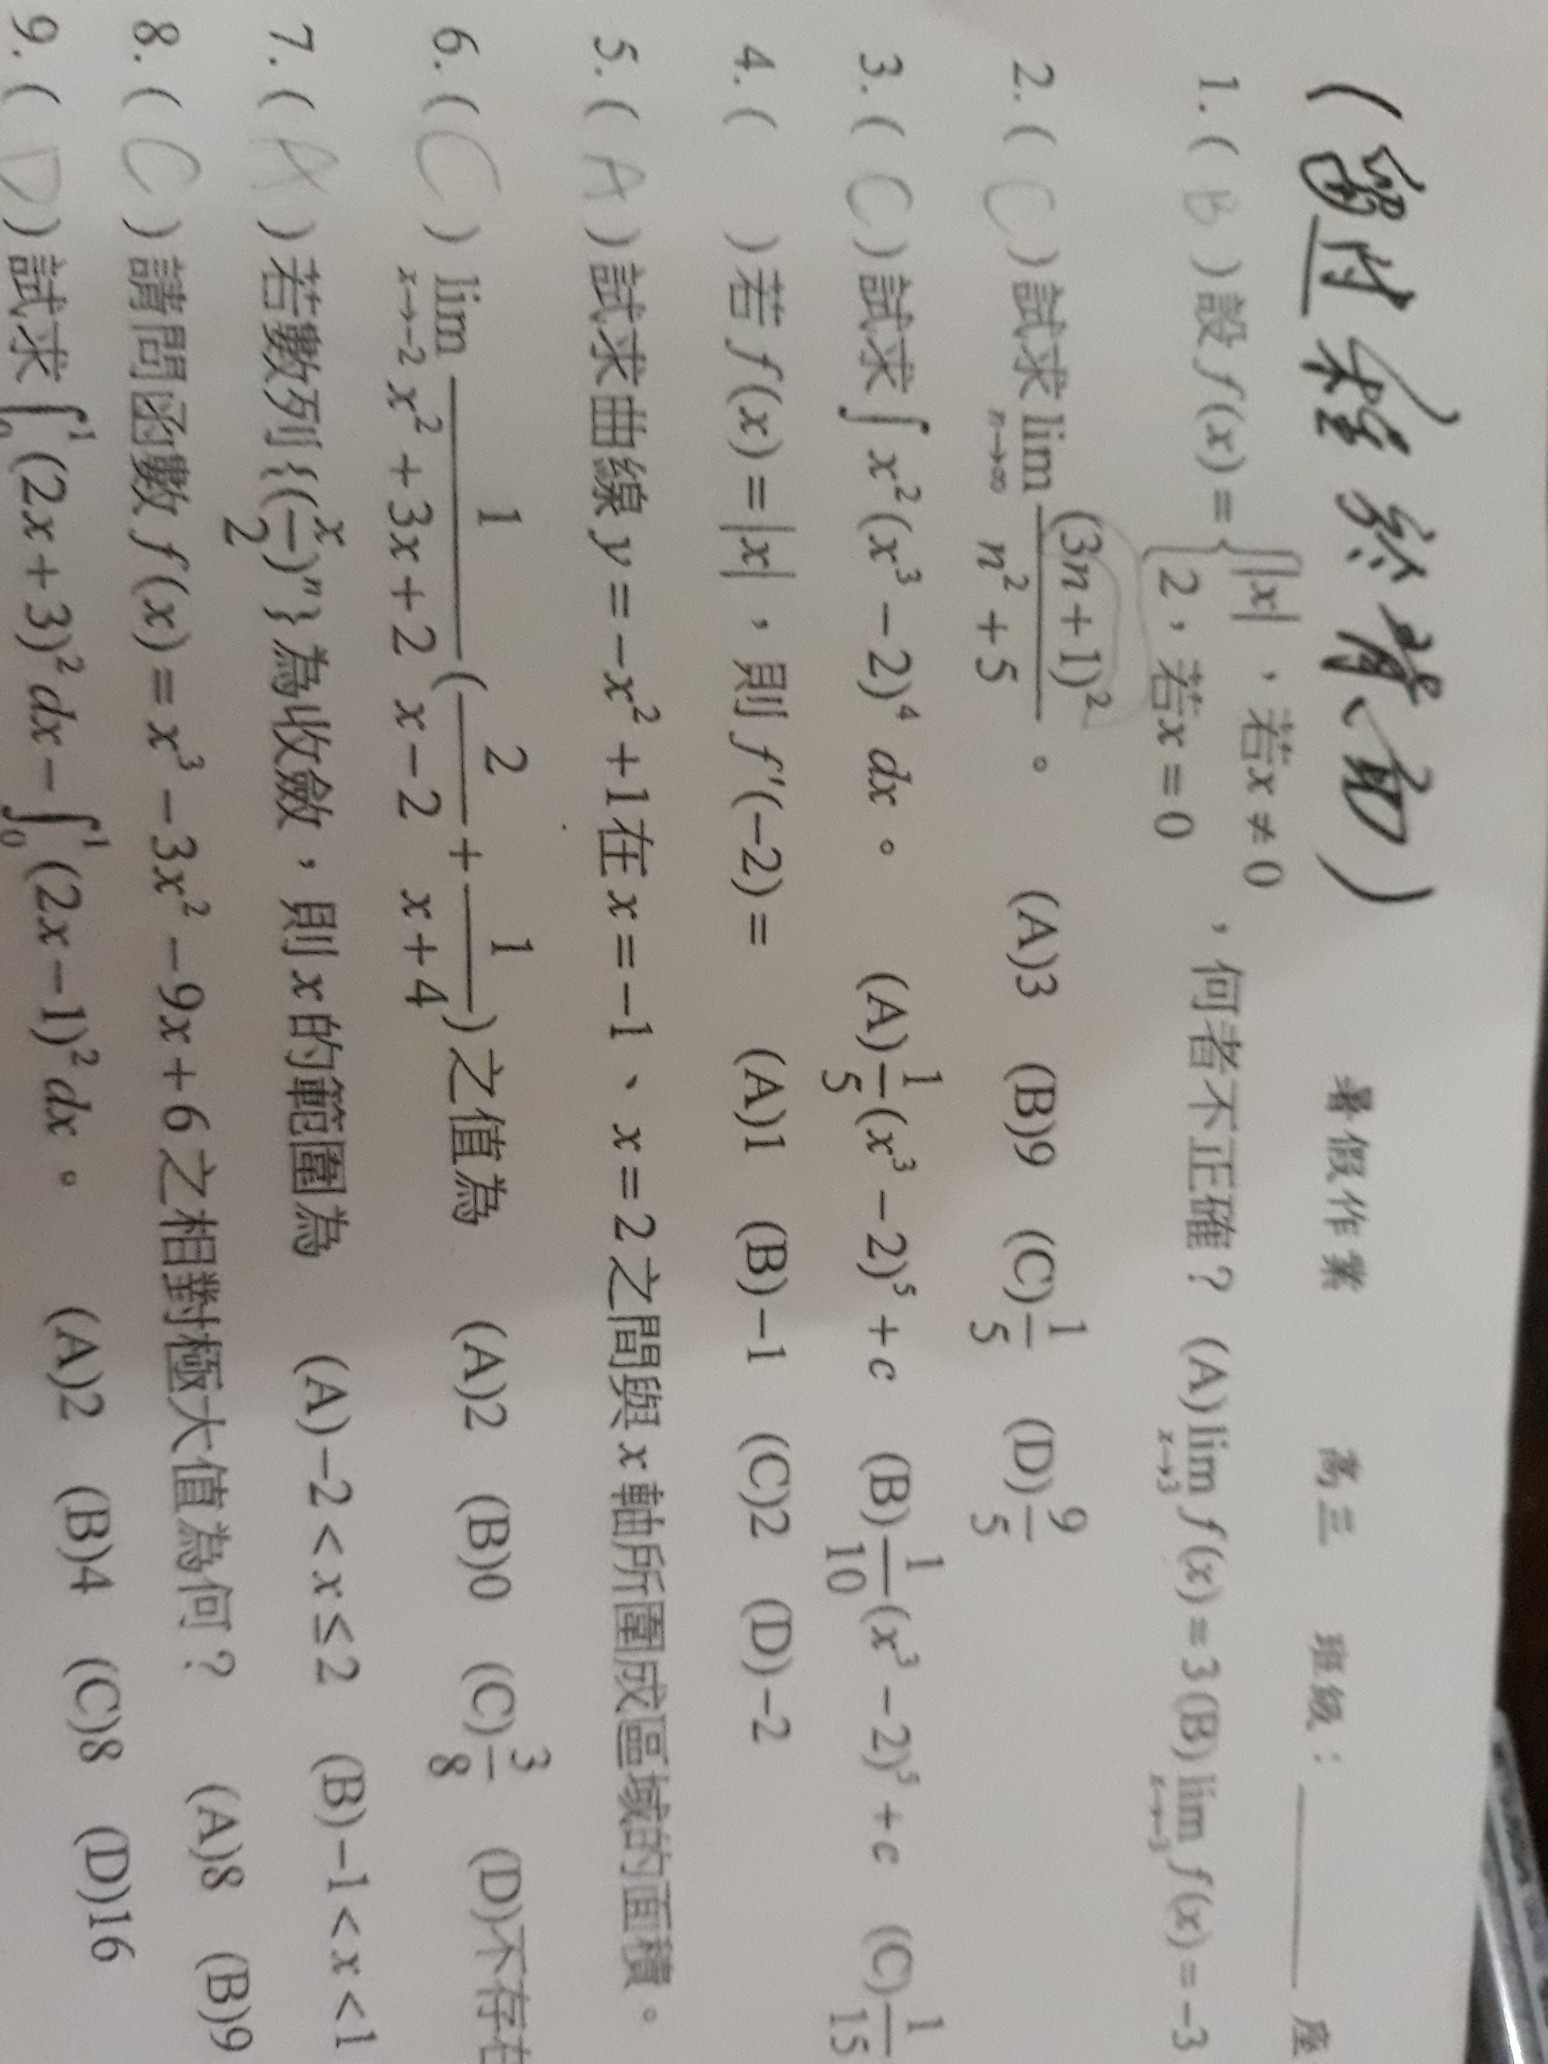 (需附程於背面)
暑假作業 高三 班級：______ 座
1.( B )設 f(x)={|x|，若x≠0 2，若x=0，何者不正確？ (A) lim x→3 f(x)=3 (B) lim x→-3 f(x)=-3
2.( C )試求 lim n→∞ (3n+1)²/(n²+5)。 (A)3 (B)9 (C)1/5 (D)9/5
3.( C )試求∫x²(x³-2)⁴ dx。 (A)1/5(x³-2)⁵+c (B)1/10(x³-2)⁵+c (C)1/15
4.( )若 f(x)=|x|，則 f'(-2)= (A)1 (B)-1 (C)2 (D)-2
5.( A )試求曲線 y=-x²+1在 x=-1、x=2之間與 x 軸所圍成區域的面積。
6.( C ) lim x→-2 1/(x²+3x+2) (2/(x-2)+1/(x+4))之值為 (A)2 (B)0 (C)3/8 (D)不存在
7.( A )若數列{(x/2)ⁿ}為收斂，則 x 的範圍為 (A)-2<x≤2 (B)-1<x<1
8.( C )請問函數 f(x)=x³-3x²-9x+6之相對極大值為何？ (A)8 (B)9
9.( D )試求∫₀¹(2x+3)² dx-∫₀¹(2x-1)² dx。 (A)2 (B)4 (C)8 (D)16